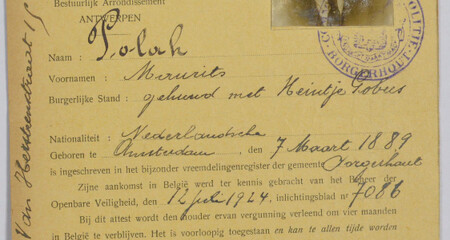 Bestuurlijk Arrondissement
ANTWERPEN
Naam : Polak
Voornamen : Maurits
Burgerlijke Stand : gehuwd met Heintje Lobees
Nationaliteit : Nederlandsche
Geboren te Amsterdam, den 7 Maart 1889
is ingeschreven in het bijzonder vreemdelingenregister der gemeente Borgerhout
Zijne aankomst in België werd ter kennis gebracht van het Beheer der
Openbare Veiligheid, den 12 juli 1924, inlichtingsblad nr 7086
Bij dit attest wordt den houder ervan vergunning verleend om vier maanden
in België te verblijven. Het is voorloopig toegestaan en kan te allen tijde worden
POLITIE
BORGERHOUT